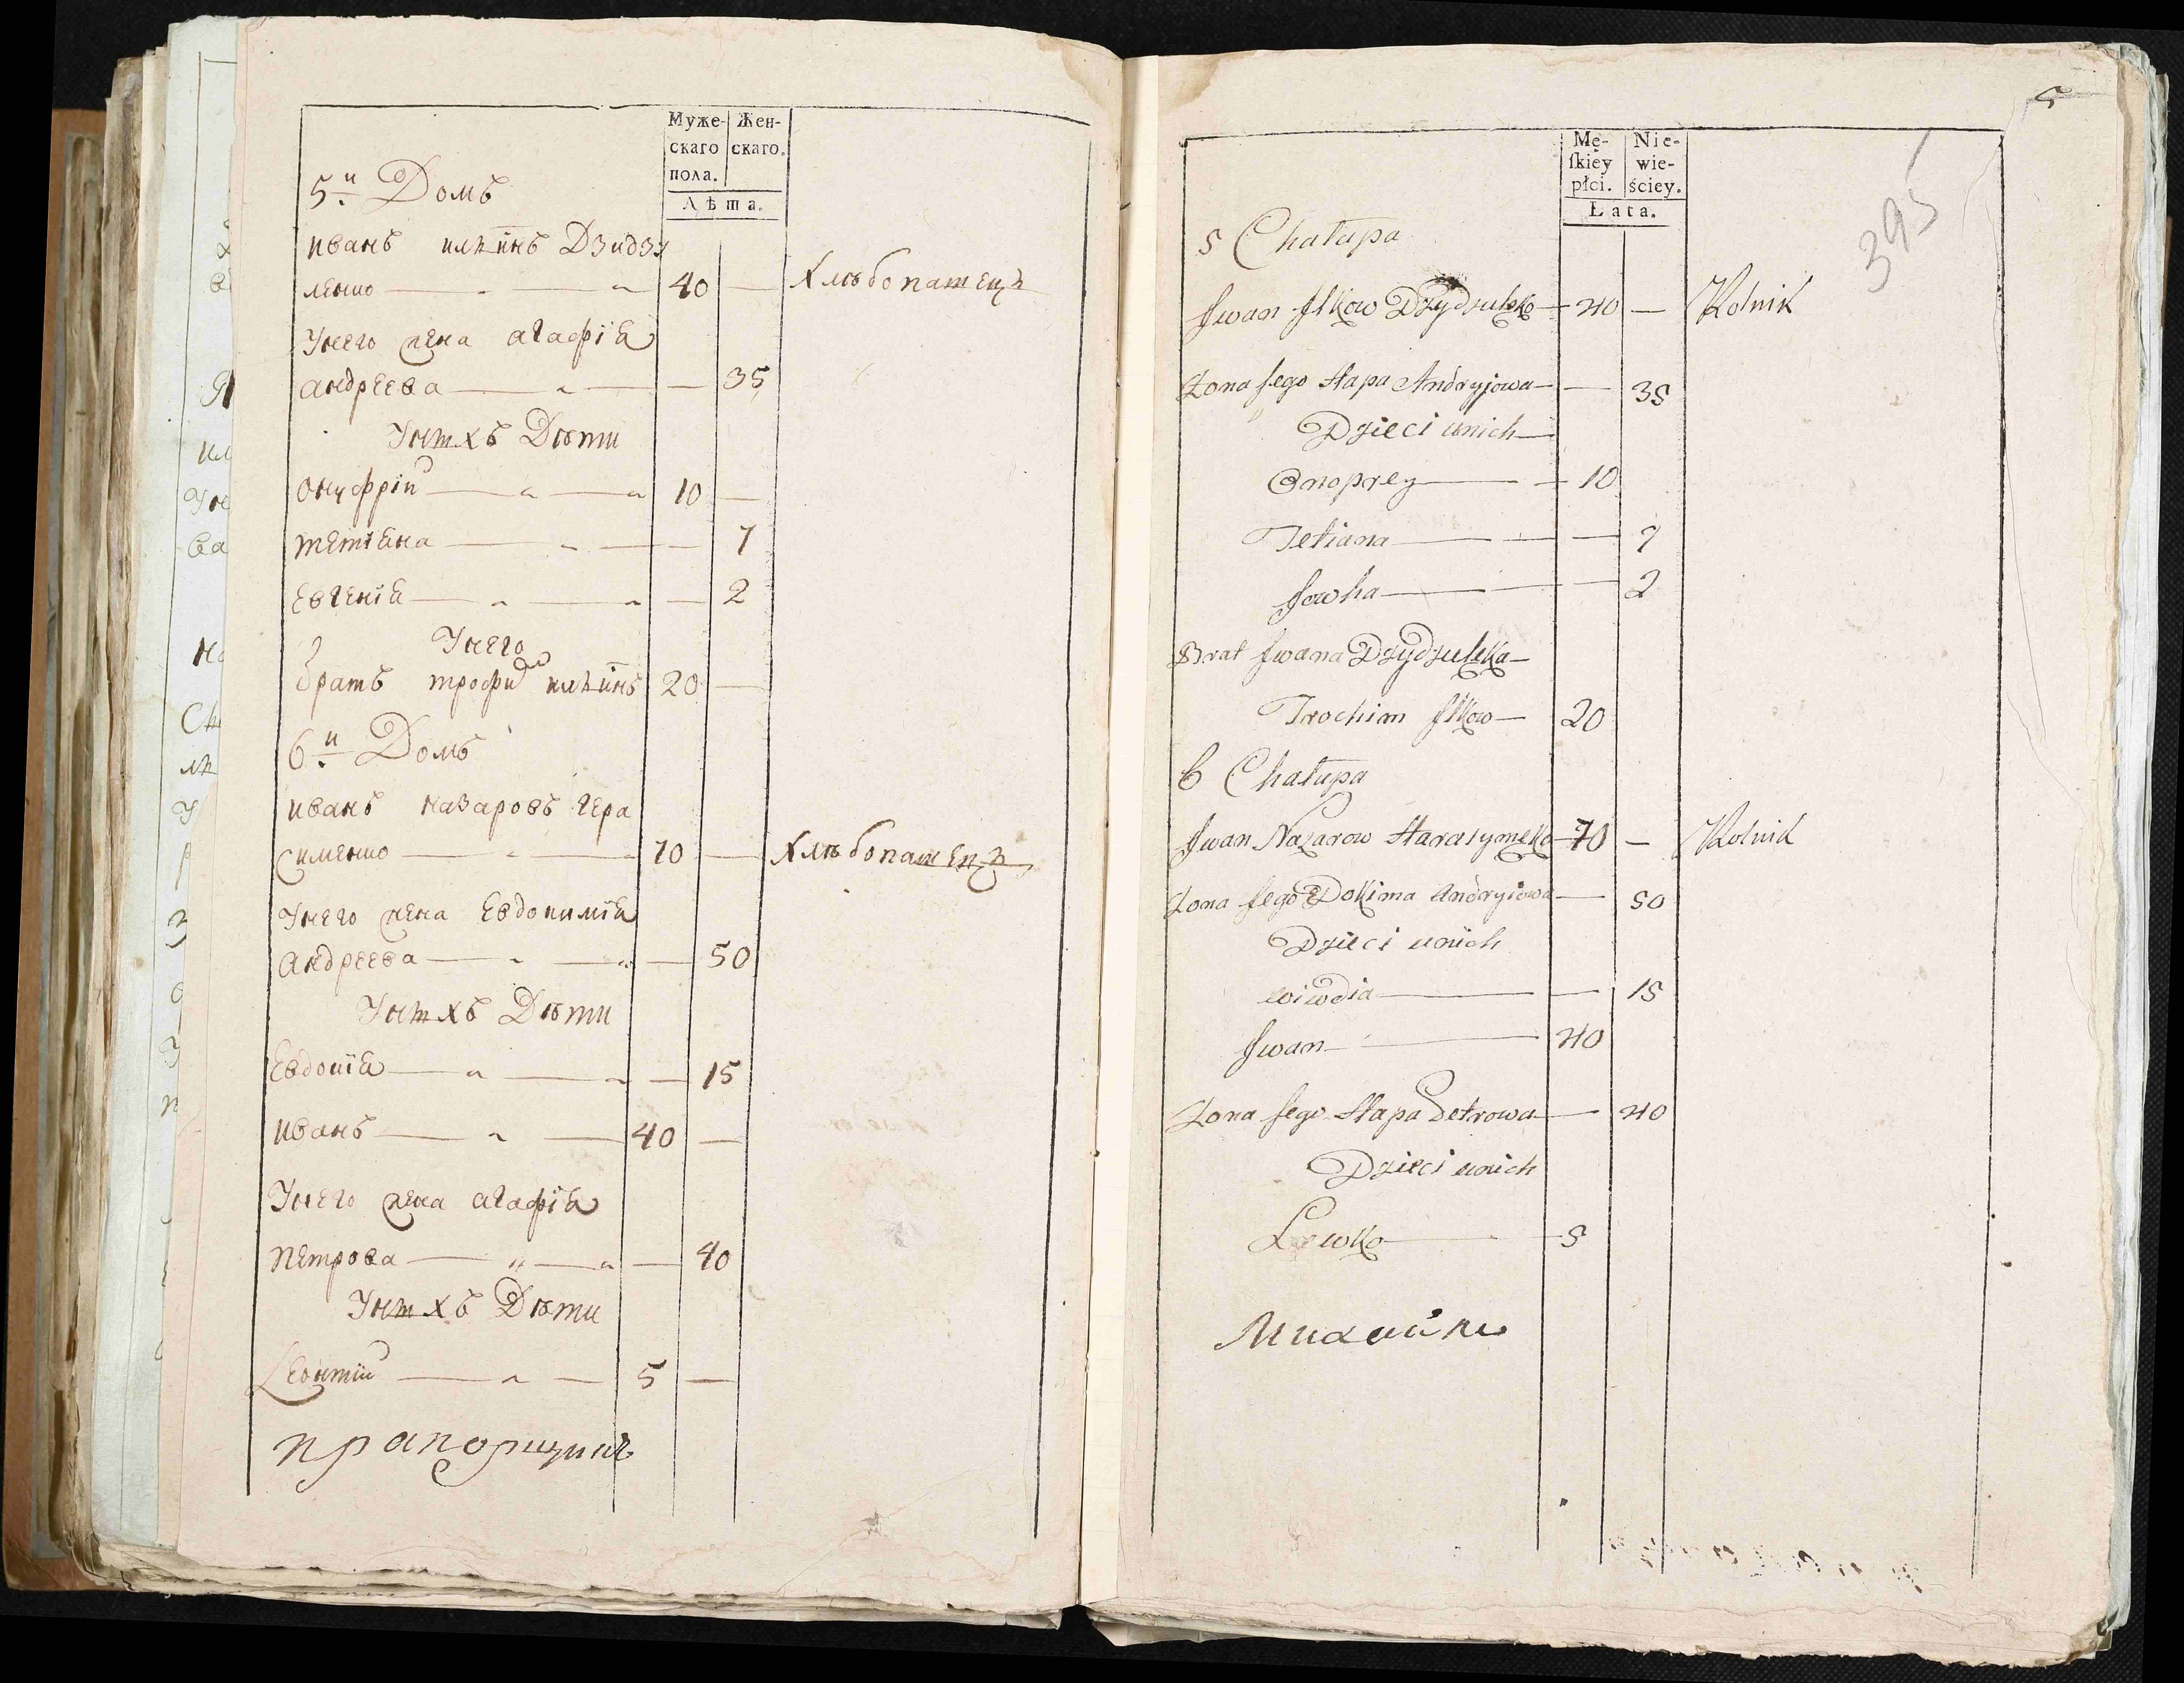 Муже-
скаго
пола.
Жен-
скаго.
Лѣта.
5й Домъ
иванъ ильинъ Дзидзу
ленко 40 — Хлѣбопашецъ
Унего жена агафія
андреева — 35
Унихъ Дѣти
онуфрій 10 —
тетіана — 7
Евгенія — 2
Унего
братъ трофим ильинъ 20 —
6й Домъ
иванъ назаровъ гера
сименко 70 — Хлѣбопашецъ
Унего жена Евдокимія
андреева — 50
Унихъ Дѣти
Евдокія — 15
иванъ 40 —
Унего жена агафія
петрова — 40
Унихъ Дѣти
Леонтій 5 —
прапорщикъ
5
395
Mę-
skiey
płci.
Nie-
wie-
ściey.
Lata.
5 Chałupa
Jwan Jlkow Dzydzulenko 40 — Rolnik
Żona Jego Hapa Andryjowa — 35
Dzieci unich
Onoprey 10
Tetiana — 7
Jowha — 2
Brat Jwana Dzydzulenka
Trochim Jlkow 20
6 Chałupa
Jwan Nazarow Harasymenko 70 — Rolnik
Żona Jego Dokima Andryiowa — 50
Dzieci unich
wiwdia — 15
Jwan 40
Żona Jego Hapa Petrowa — 40
Dzieci unich
Lewko 5